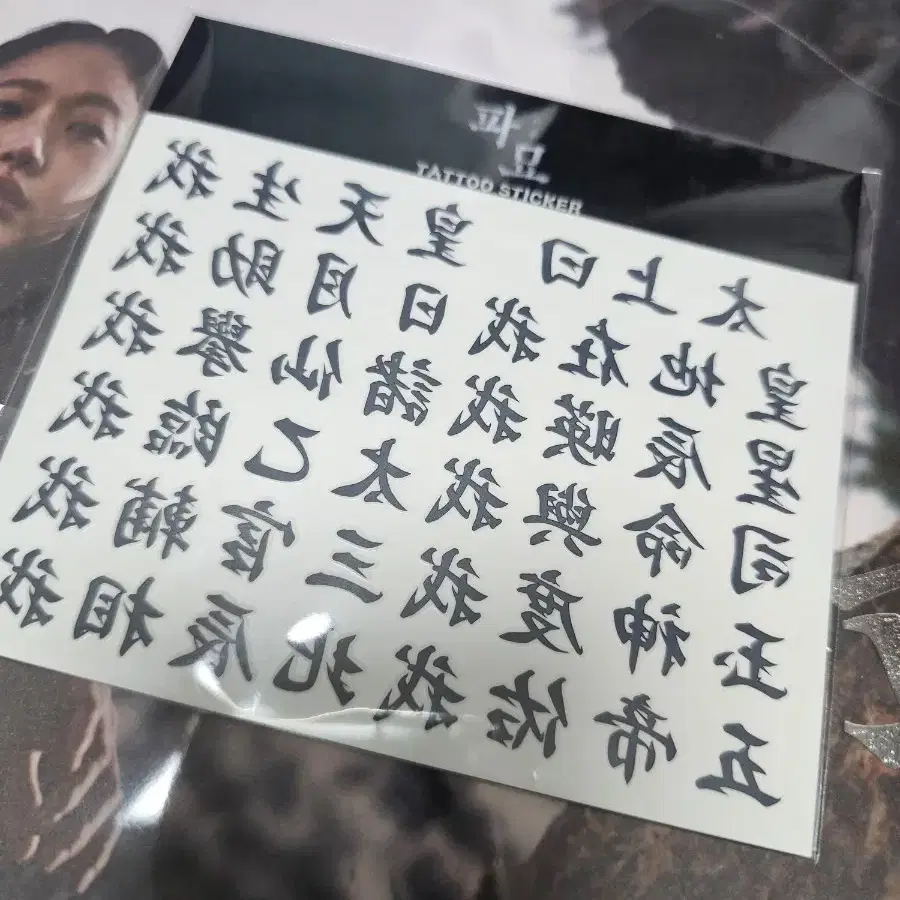 파묘
TATTOO STICKER
太上曰 皇天生我
皇地在我 日月助我
星辰暎我 諸仙擧我
司命與我 太乙臨我
玉神度我 三官輔我
五帝佐我 北辰相我